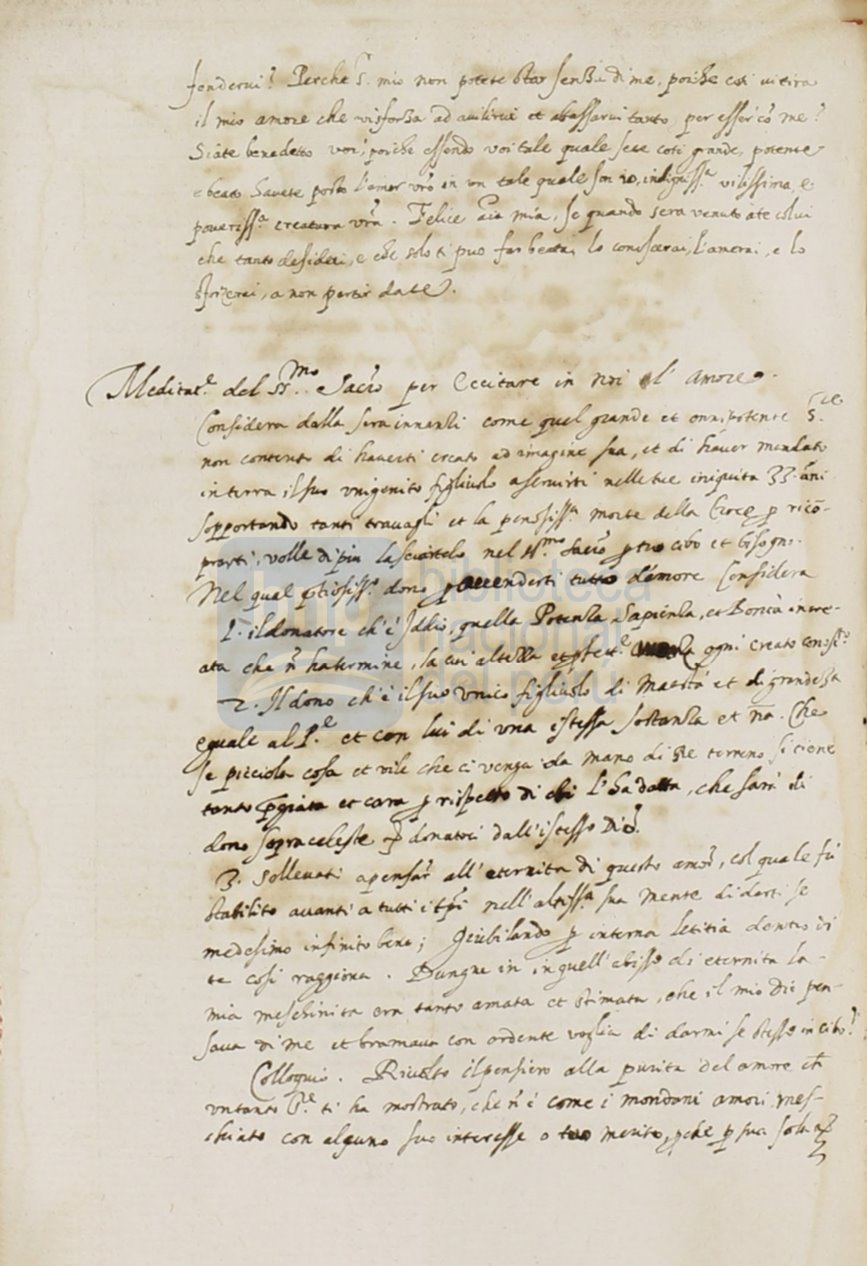 fenderui? Perche S. mio non potete star senza di me, poiche cosi ui tira
il mio amore che ui sforza ad auilirui et abassarui tanto per esser cō me?
Siate benedetto voi, poiche essendo voi tale quale sete cosi grande, potente
e beato hauete posto l'amor vr̄o in vn tale quale son io, indigniss.ᵃ vilissima, e
poueriss.ᵃ creatura vr̄a. Felice aīa mia, se quando sera venuto a te colui
che tanto desideri, e che solo ti puo far beata, lo conoscerai, l'amerai, e lo
sforzerai, a non partir da te.
Meditat.ᵉ del SS.ᵐᵒ Sacr̄o per Eccitare in noi l'amore.
Considera dalla sera innanzi come quel grande et onnipotente S.ʳᵉ
non contento di hauerti creato ad imagine sua, et di hauer mandato
in terra il suo vnigenito figliuolo a seruirti nelle tue iniquita 33 ani
sopportando tanti trauagli et la penosiss.ᵃ morte della Croce p ricō-
prarti, volle di piu lasciartelo nel SS.ᵐᵒ Sacr̄o p tuo cibo et bisogno.
Nel qual p̄tiosiss.ᵒ dono p accenderti tutto d'amore Considera
1. il donatore ch'è Iddio, quella Potenza, Sapienza, et Bontà incre-
ata che n̄ ha termine, la cui altezza et ogni creato
2. Il dono ch'è il suo vnico figliuolo di Maestà et di grandezza
eguale al P.ᵉ et con lui di vna istessa sostanza et nā. Che
se picciola cosa et vile che ci venga da mano di Re terreno si tiene
tanto p̄giata et cara p rispetto di chi l'ha data, che sarà di
dono sopraceleste donatoci dall'istesso Dio?
3. Solleuati a pensar all'eternita di questo amor, col quale fù
stabilito auanti a tutti i tp̄i nell'altiss.ᵃ sua mente di darti se
medesimo infinito bene; Giubilando p interna letitia dentro di
te cosi raggiona. Dunque in in quell'abisso di eternita la
mia meschinita era tanto amata et stimata, che il mio Dio pen-
saua di me et bramaua con ardente voglia di darmi se stesso in cibo?
Colloquio. Riuolto il pensiero alla purita del amore ch̄
vn tanto P.ᵉ ti ha mostrato, che n̄ è come i mondani amori mes-
chiato con alguno suo interesse o tuo merito, p̄che p sua sola